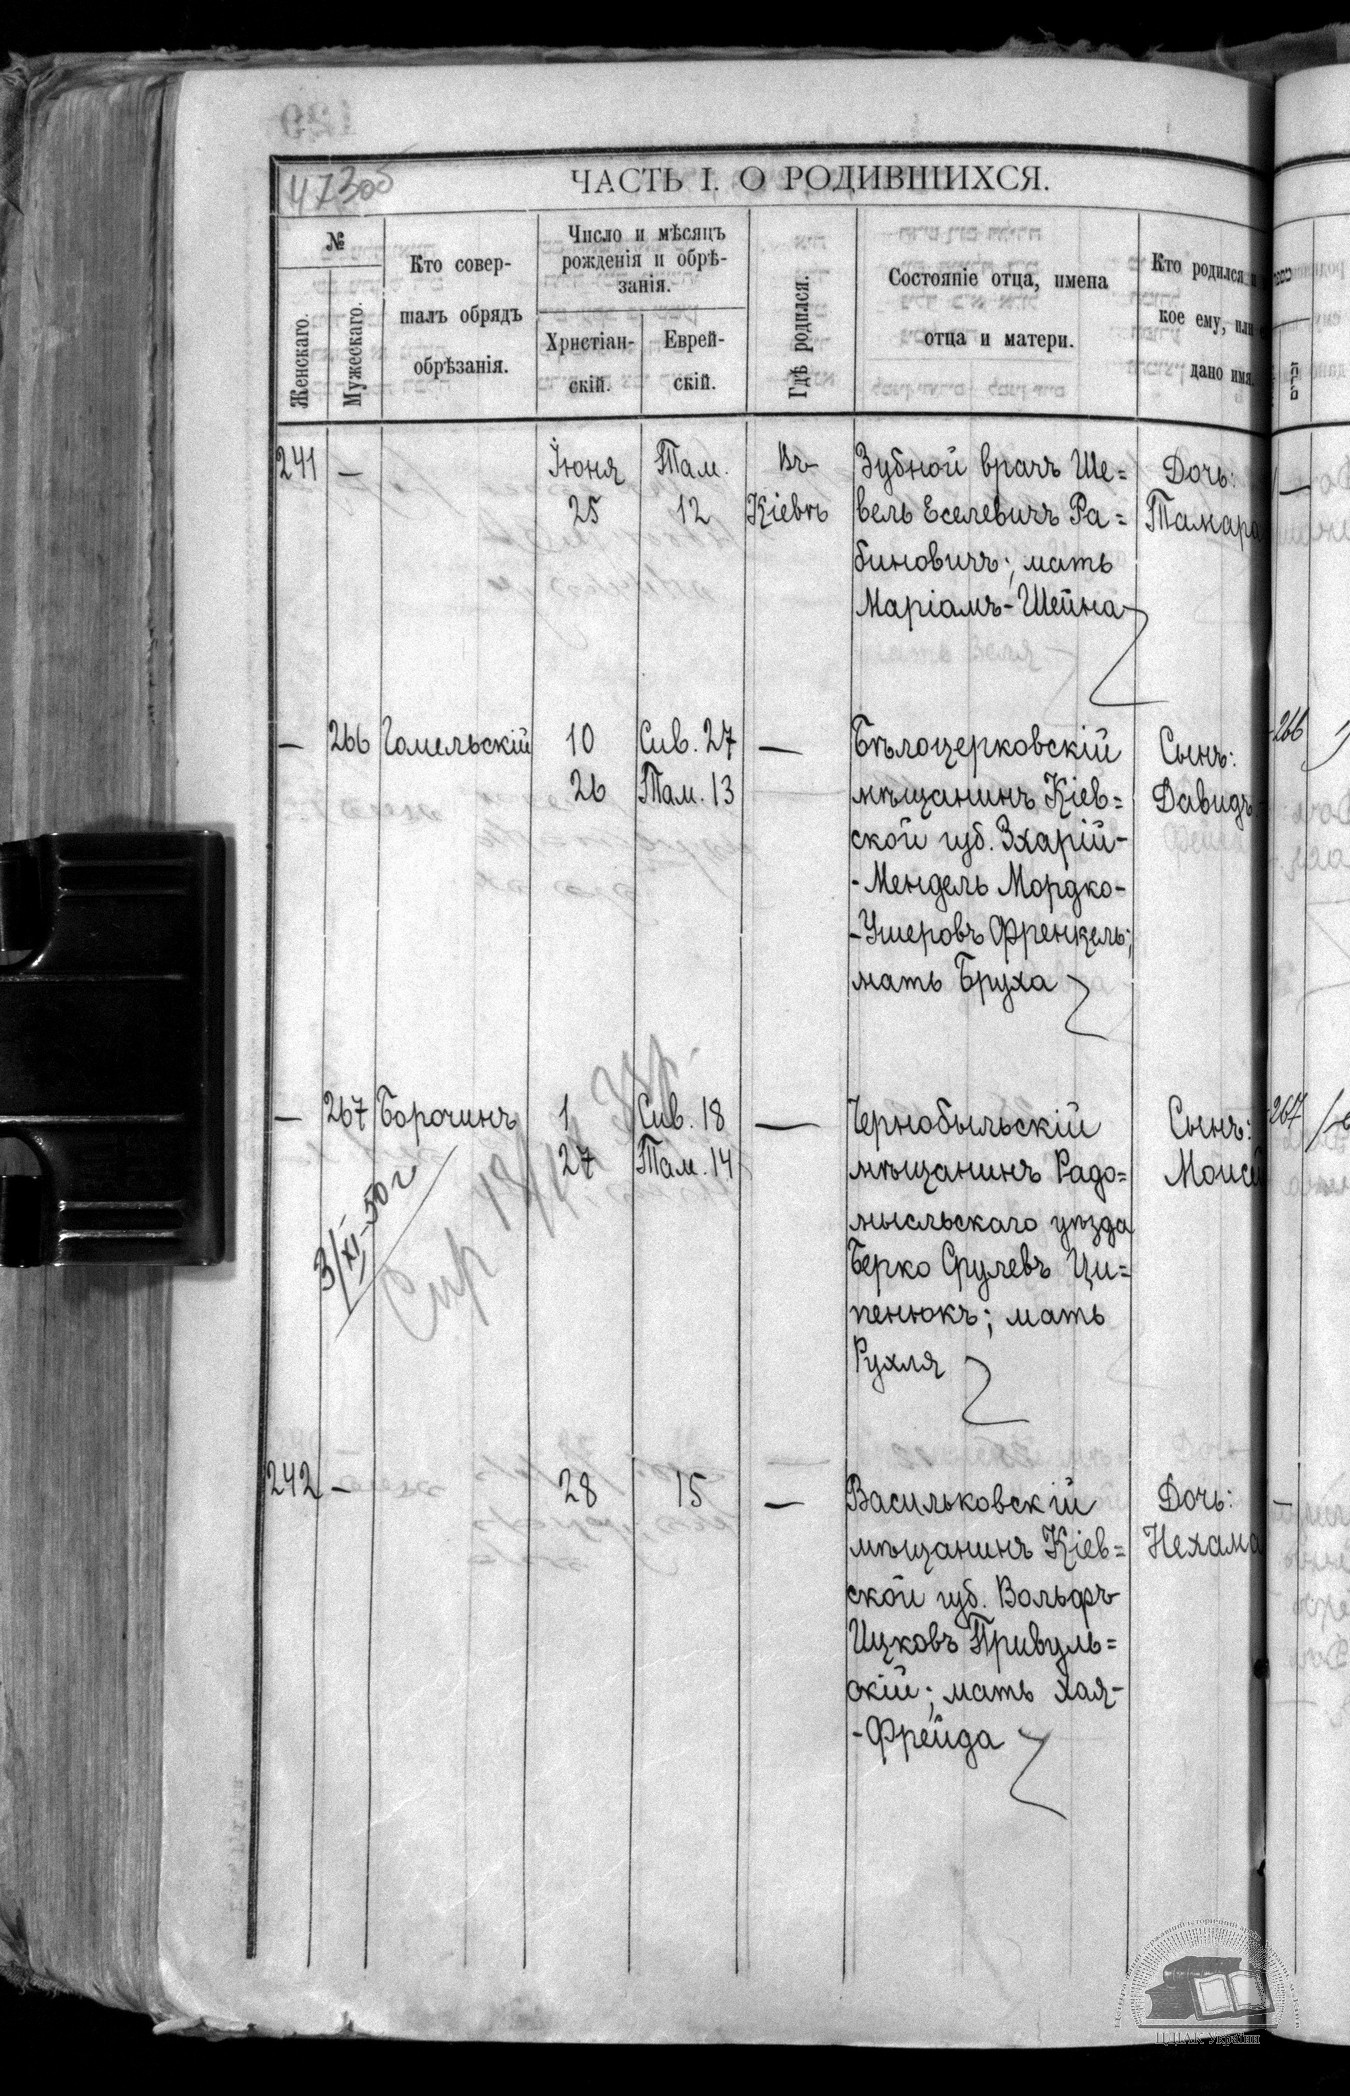 47305
ЧАСТЬ I. О РОДИВШИХСЯ.
№
Женскаго.
Мужескаго.
Кто совер-
шалъ обрядъ
обрѣзанія.
Число и мѣсяцъ
рожденія и обрѣ-
занія.
Христіан-
скій.
Еврей-
скій.
Гдѣ родился.
Состояніе отца, имена
отца и матери.
Кто родился и
кое ему, или
дано имя.
241 —
Іюня
25
Там.
12
Въ
Кіевѣ
Зубной врачъ Ше=
вель Еселевичъ Ра=
биновичъ; мать
Маріамъ-Шейна
Дочь:
Тамара
— 266 Гомельскій
10
26
Сив. 27
Там. 13
—
Бѣлоцерковскій
мѣщанинъ Кіев=
ской губ. Зхарій-
-Мендель Мордко-
-Ушеровъ Френкель;
мать Бруха
Сынъ:
Давидъ
266
— 267 Борочинъ
1
27
Сив. 18
Там. 14
—
Чернобыльскій
мѣщанинъ Радо=
мысльскаго уѣзда
Берко Срулевъ Ци=
пенюкъ; мать
Рухля
Сынъ:
Моисей
267
3/XI-50 г
242 —
28
15
—
Васильковскій
мѣщанинъ Кіев=
ской губ. Вольфъ
Ицковъ Привуль=
скій; мать Хая-
-Фрейда
Дочь:
Нехама
ЦДІАК України